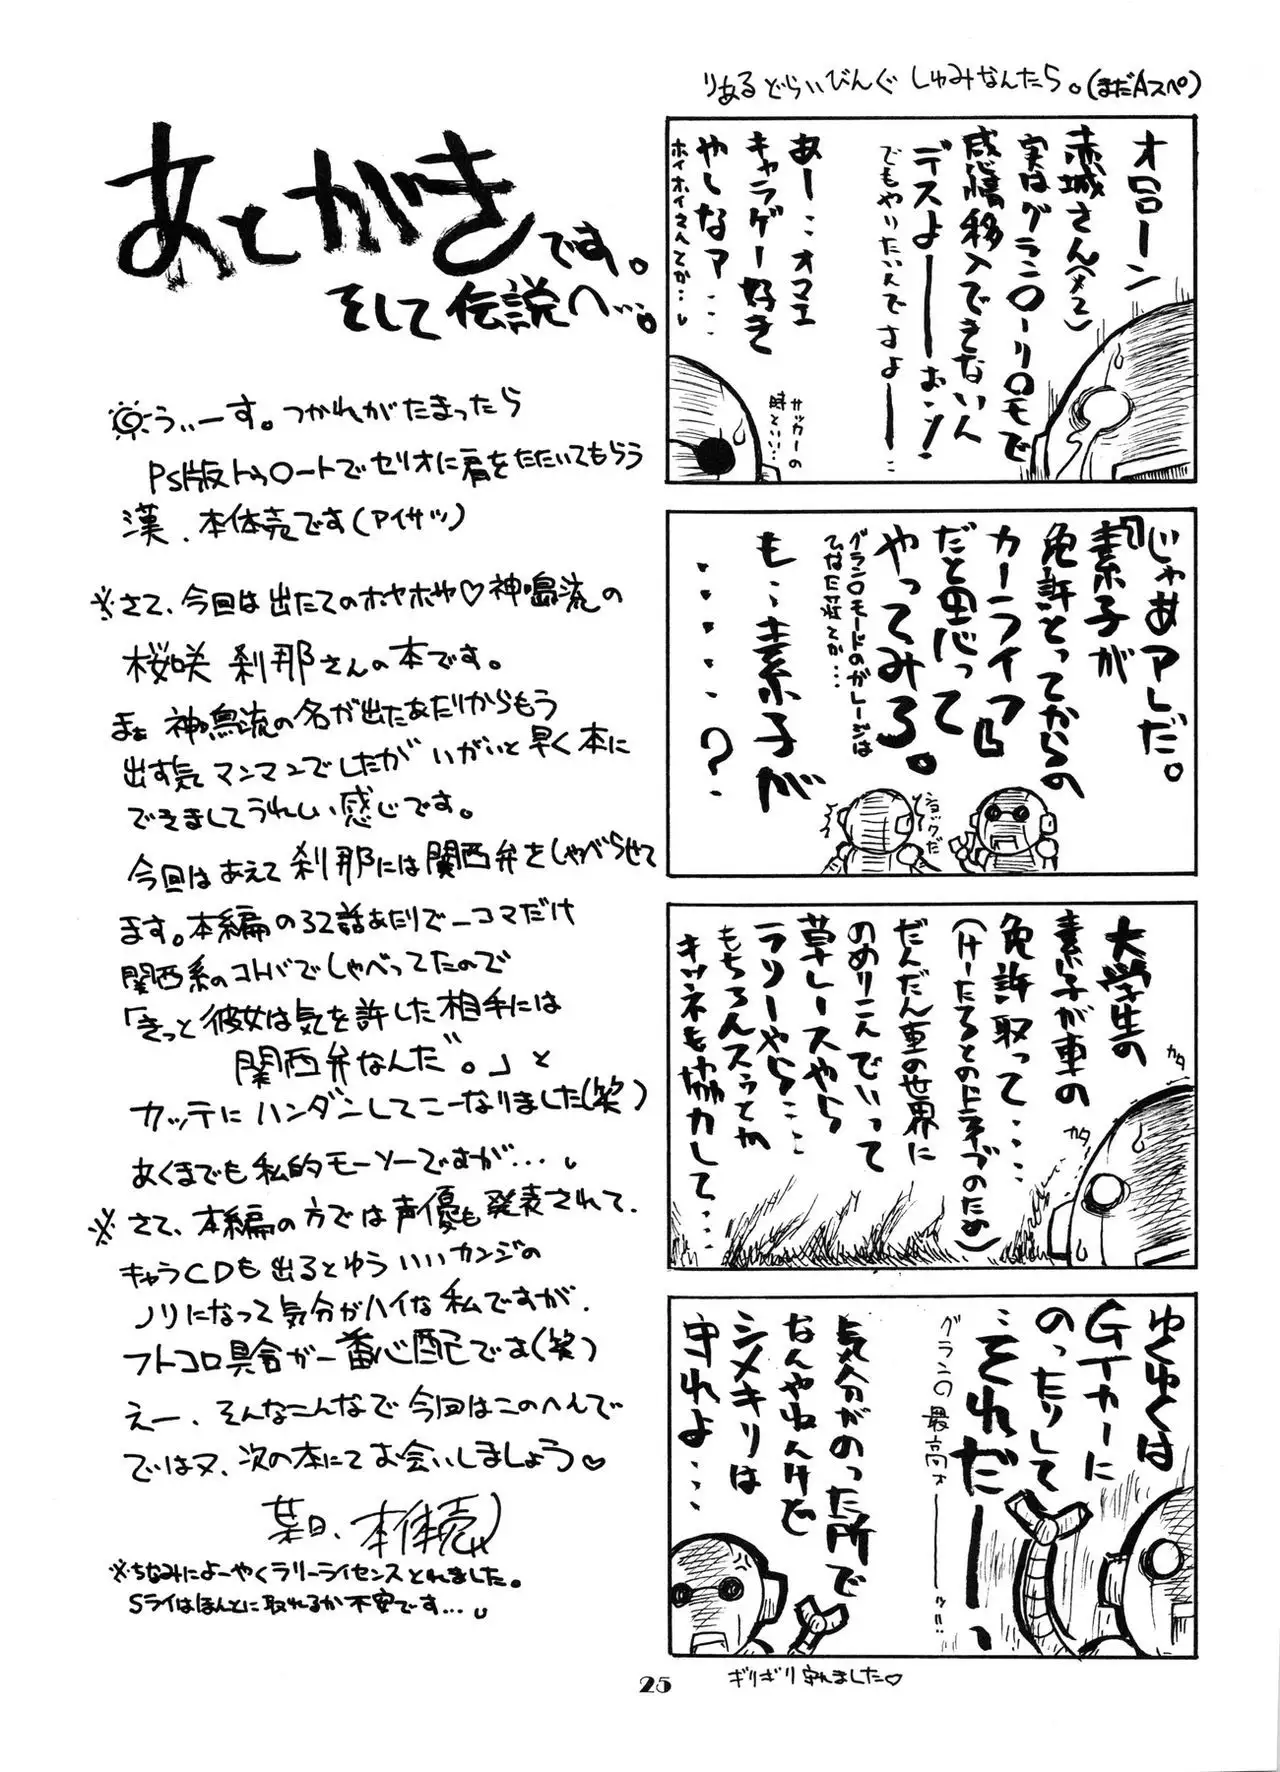 あとがきです。
そして伝説へ…。
うぃーす。つかれがたまったら
PS版トゥハートでセリオに肩をたたいてもらう
漢、本体売です(アイサツ)
※さて、今回は出たてのホヤホヤ♡神鳴流の
桜咲 刹那さんの本です。
まぁ 神鳴流の名が出たあたりからもう
出す気マンマンでしたが いがいと早く本に
できましてうれしい感じです。
今回はあえて刹那には関西弁をしゃべらせて
ます。本編の32話あたりで一コマだけ
関西系のコトバでしゃべってたので
「きっと彼女は気を許した相手には
関西弁なんだ。」と
カッテにハンダンしてこーなりました(笑)
あくまでも私的モーソーですが…。
※さて、本編の方では声優も発表されて、
キャラCDも出るとゆういいカンジの
ノリになって気分がハイな私ですが、
フトコロ具合が一番心配です(笑)
えー、そんなこんなで今回はこのへんで
ではヌ、次の本にてお会いしましょう♡
葉日、本体売
※ちなみによーやくラリーライセンスとれました。
Sライはほんとに取れるか不安です…。
りあるどらいびんぐ しゅみなんたら。(まだAスペ)
オローン
赤城さん(メス)
実はグラン〇ーリ〇モで
感情移入できないん
デスよーーおン!
でもやりたいんですよーー
あー‥オマエ
キャラゲー好き
やしなァ…
ホイホイさんとか…。
サッカーの
時といい…
『じゃあアレだ。
素子が
免許とってからの
カーライフ』
だと思って
やってみろ。
グラン〇モードのガレージは
ひなた荘とか…
も‥素子が
・・・・?
ショックだ
大学生の
素子が車の
免許取って・・・・
(けーたろとのドライブのため)
だんだん車の世界に
のめりこんでいって
草レースやら
ラリーやら…
もちろんスゥとか
キツネも協力して…
カタ
カタ
ゆくゆくは
GTカーに
のったりして
‥それだーーっ
グランの最高ォーーッ!!
気分がのった所で
なんやねんけど
シメキリは
守れよ・・・・
ギリギリ守れました♡
25